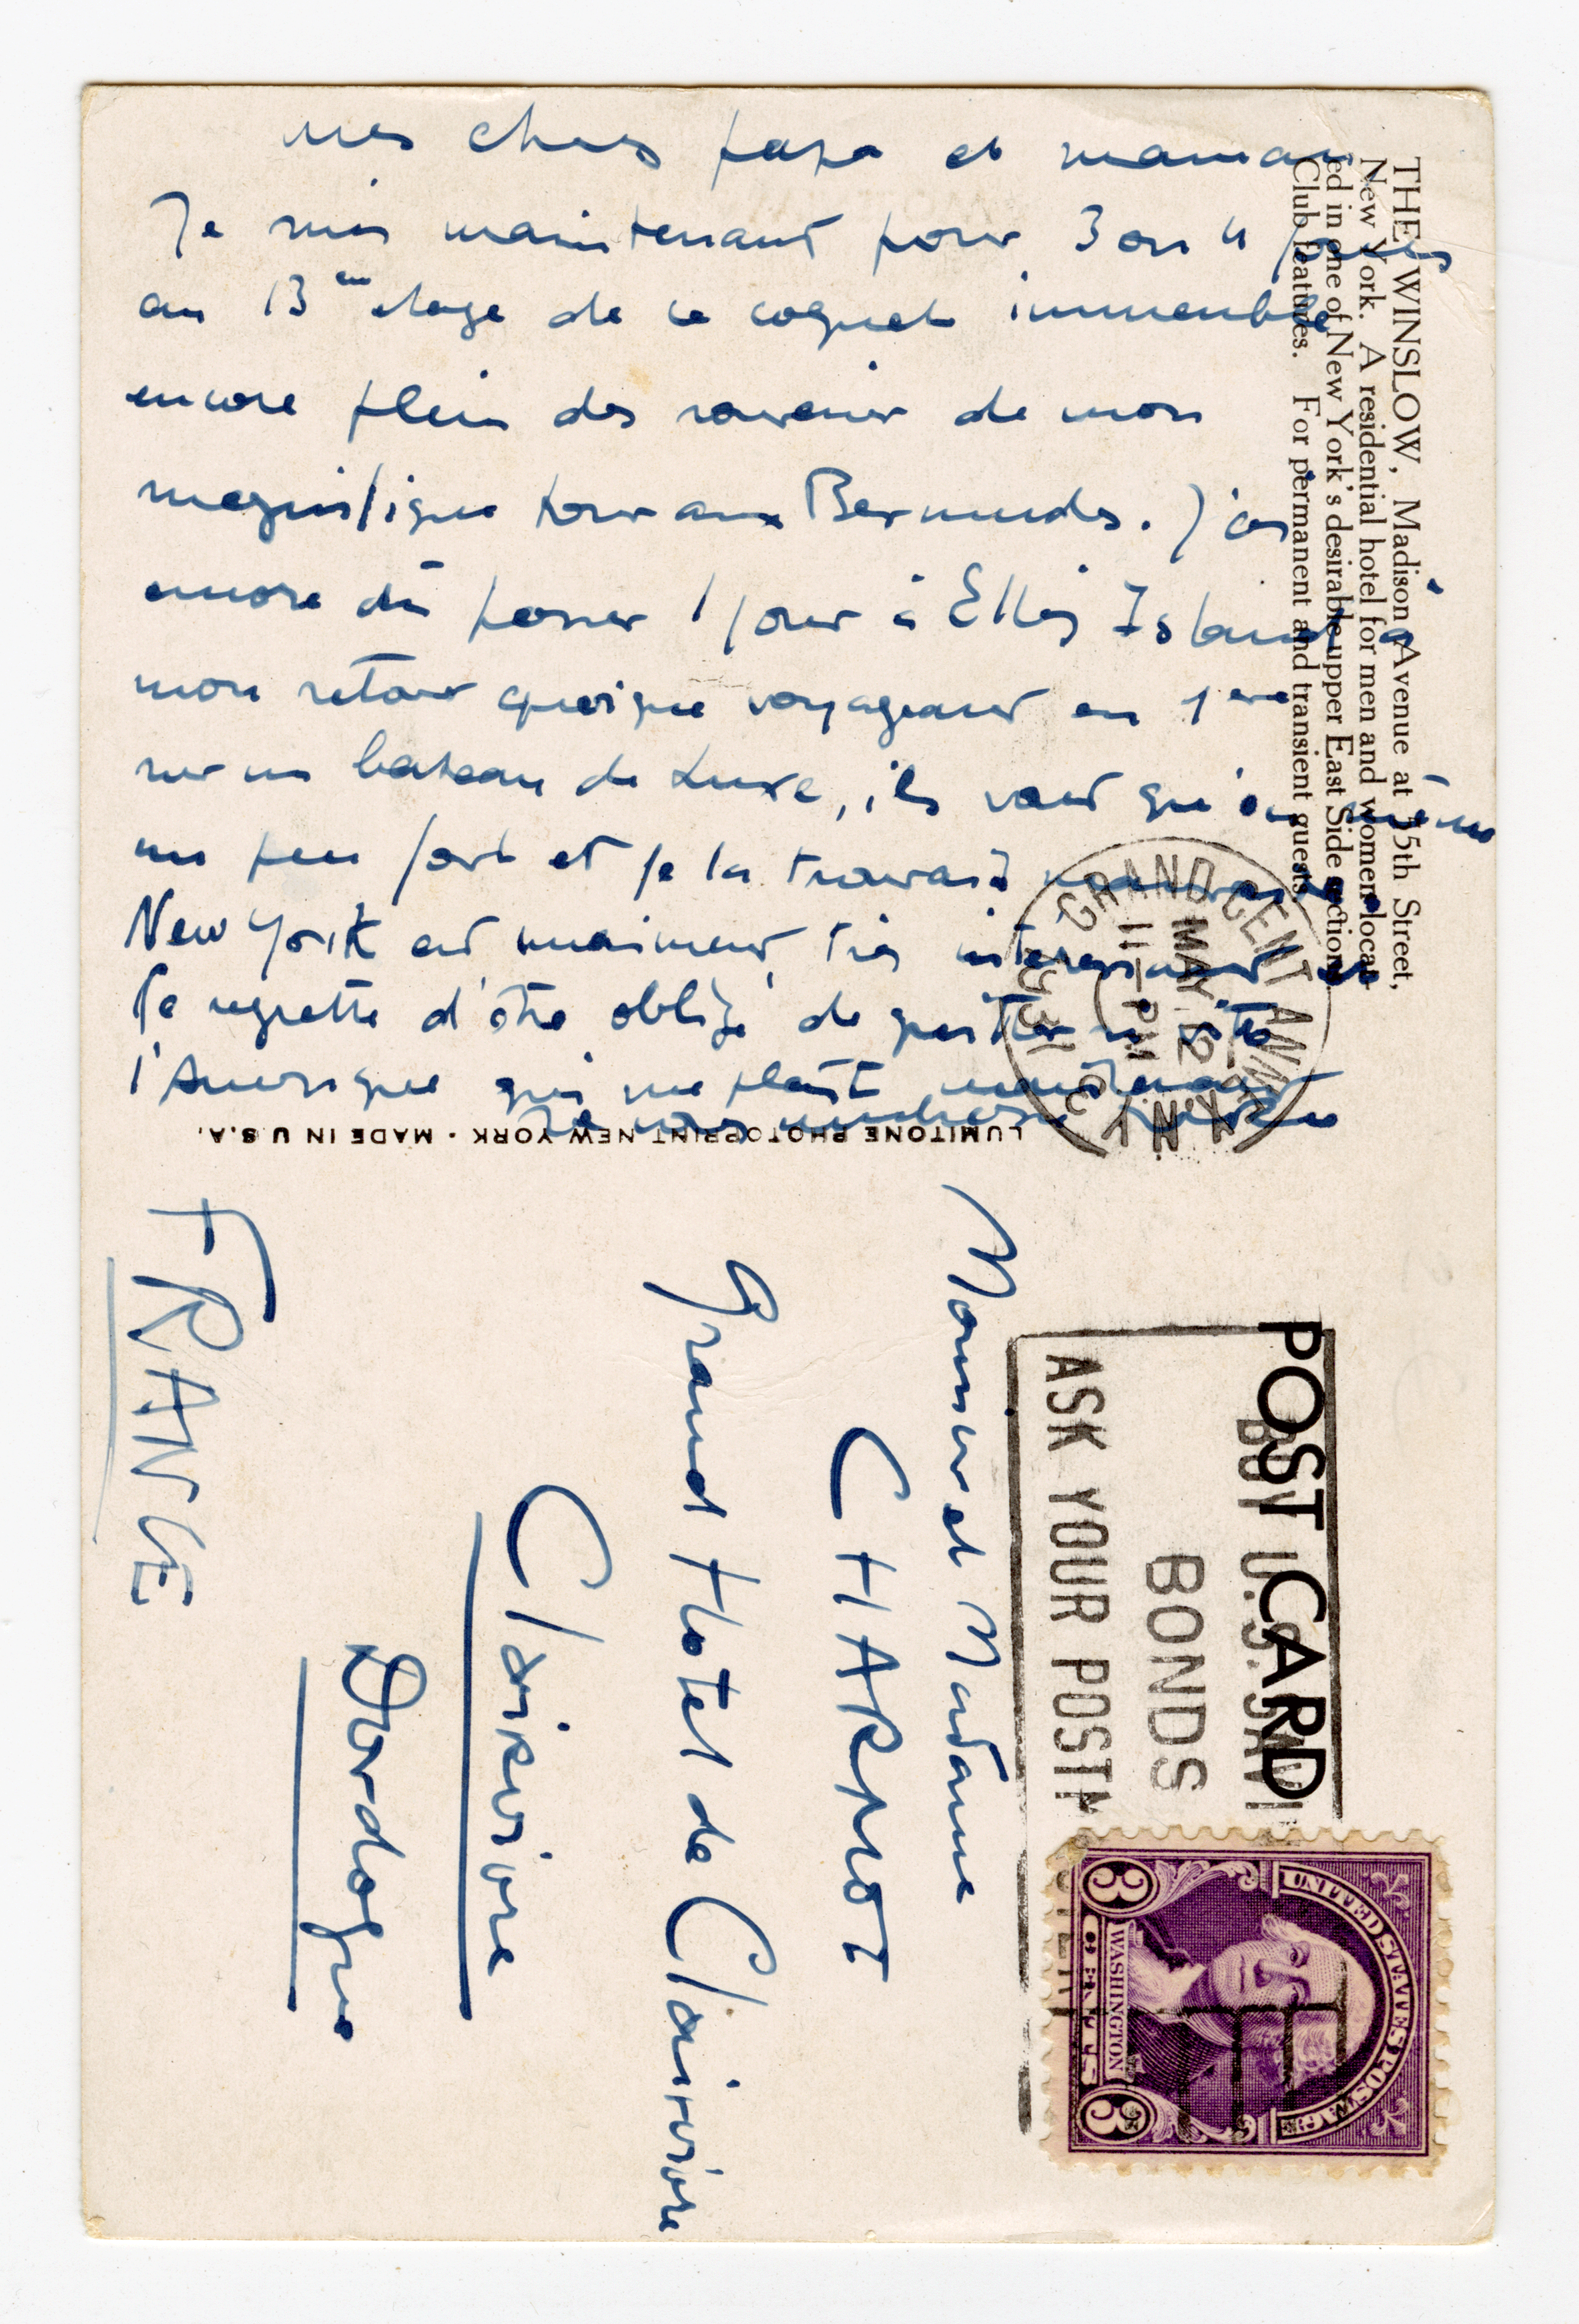 mes chers papa et maman
Je suis maintenant pour 3 ou 4 jours
au 13em etage de ce coquet immeuble
encore plein des souvenir de mon
magnifique tour aux Bermudes. J'ai
encore dû passer 1 jour à Ellis Island à
mon retour quoique voyageant en 1ere
sur un bateau de Luxe, ils vont
un peu fort et je la trouvais
New York est vraiment très interessant et
Je regrette d'être obligé de quitter si vite
l'Amerique qui me plait maintenant
Je vous embrasse
THE WINSLOW, Madison Avenue at 55th Street,
New York. A residential hotel for men and women locat-
ed in one of New York's desirable upper East Side sections.
Club features. For permanent and transient guests.
LUMITONE PHOTOPRINT NEW YORK · MADE IN U.S.A.
GRAND CENT ANNEX
MAY 2
11 PM
N.Y.
POST CARD
BUY U.S. SAVI
BONDS
ASK YOUR POSTM
UNITED STATES POSTAGE
WASHINGTON
3 CENTS 3
Monsieur et Madame
CHARNOT
Grand Hotel de Clairvivre
Clairvivre
Dordogne
FRANCE